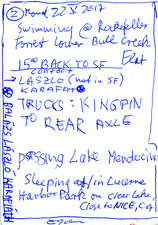 ② Mond 22 V 2017
Swimming @ Rockefeller
Forrest Lower Bull Creek
Flat
15⁰⁰ BACK TO SF
CONTACT
LÁSZLO (not in SF)
KARAFÁT
TRUCKS: KINGPIN
TO REAR AXLE
passing Lake Mendocino
Sleeping at/in Lucerne
Harbor Park on clear Lake
Close to NICE, CA
BALÁZS LÁSZLÓ KARAFIÁTH